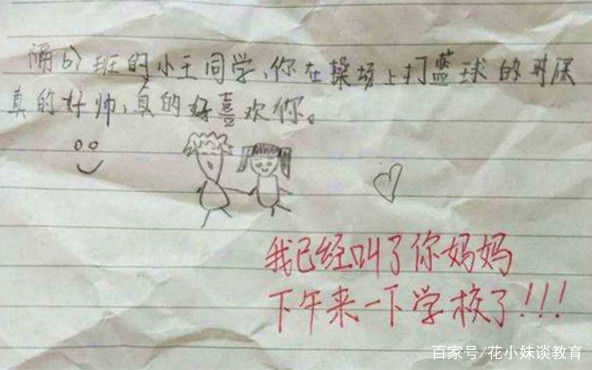 隔ㄅ班的小王同学,你在操场上打蓝球的时候
真的好帅,真的好喜欢你。
我已经叫了你妈妈
下午来一下学校了!!!
百家号/花小妹谈教育